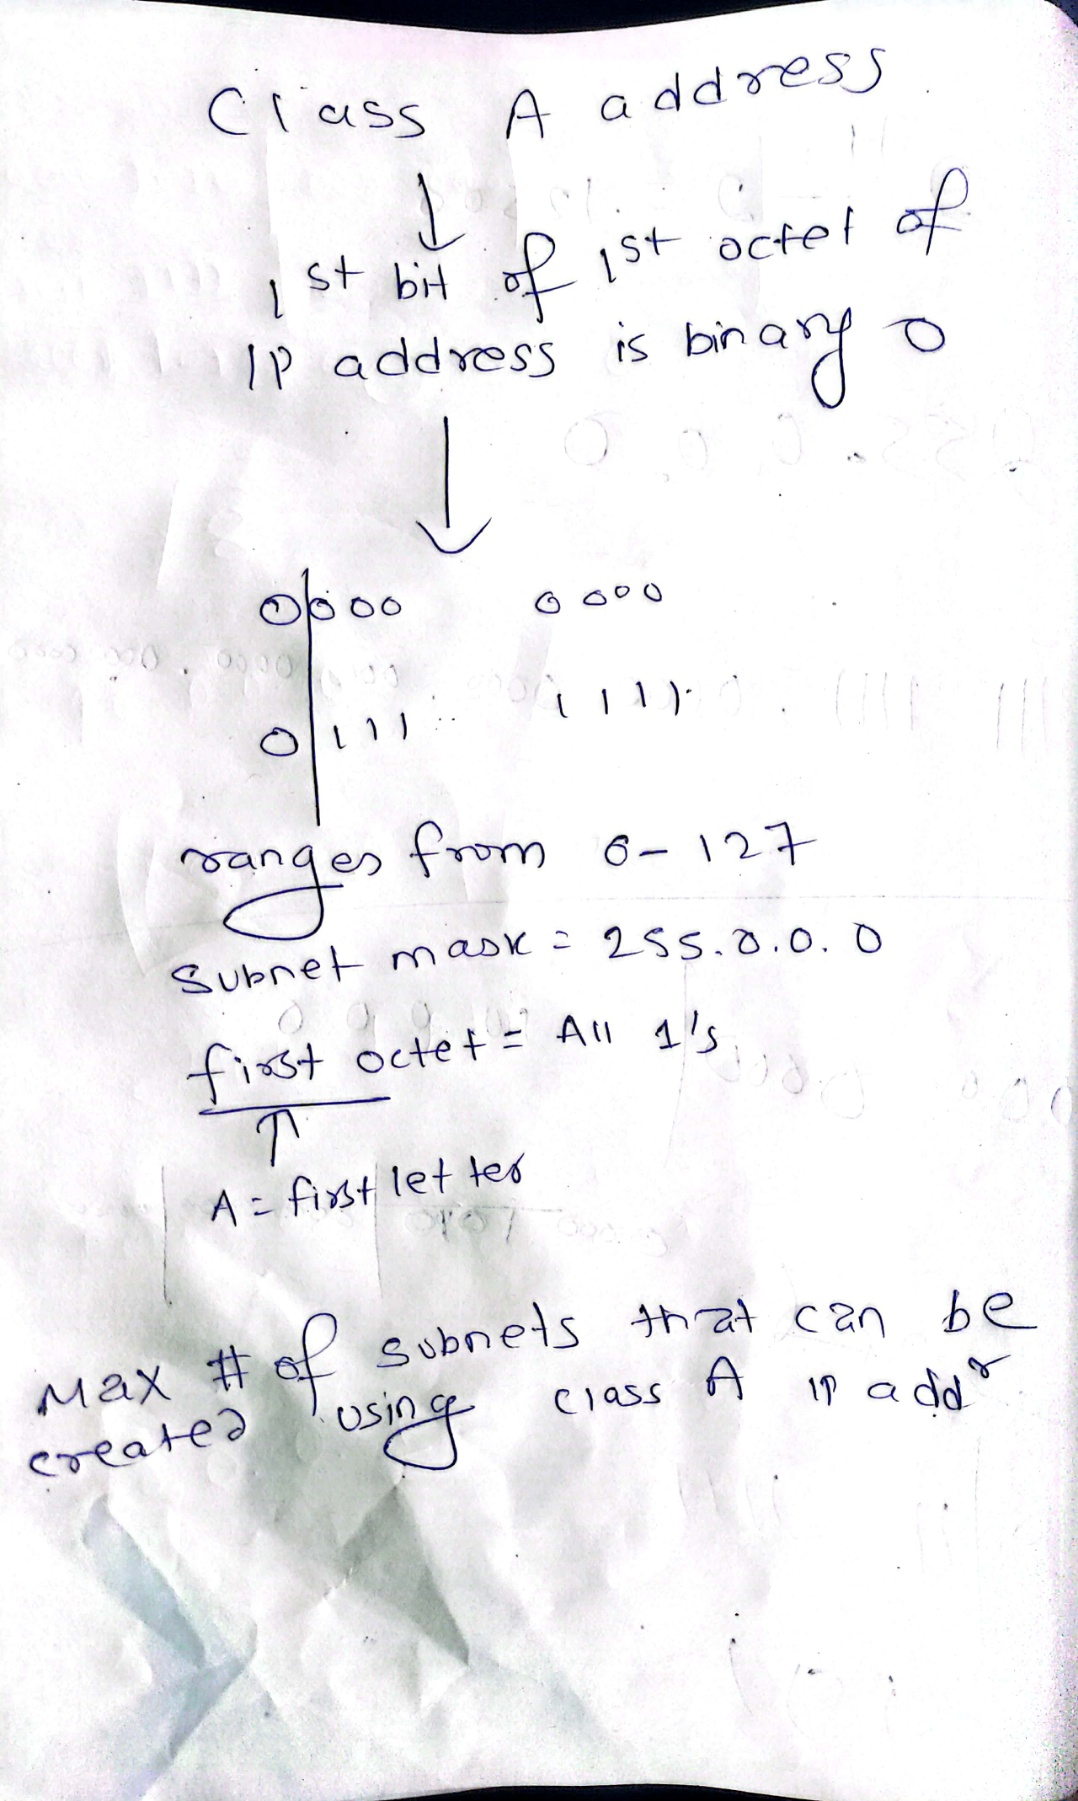 Class A address
↓
1st bit of 1st octet of
IP address is binary 0
↓
0|000 0000
0|111 1111
ranges from 0-127
Subnet mask = 255.0.0.0
first octet = All 1's
↑
A = first letter
Max # of subnets that can be
created using class A IP addr